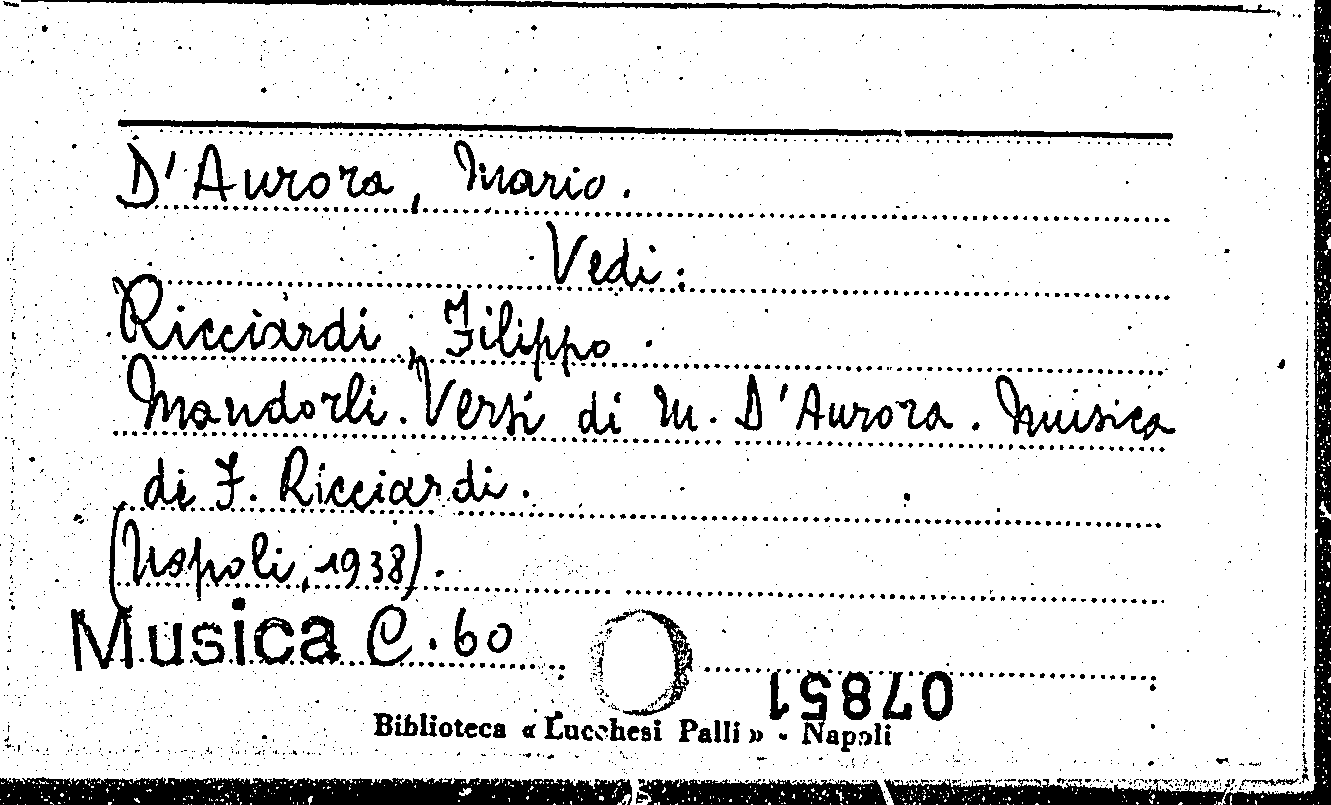 D'Aurora, Mario.
Vedi:
Ricciardi, Filippo.
Mandorli. Versi di M. D'Aurora. Musica
di F. Ricciardi.
(Napoli, 1938).
Musica C. 60
07851
Biblioteca « Lucchesi Palli » - Napoli